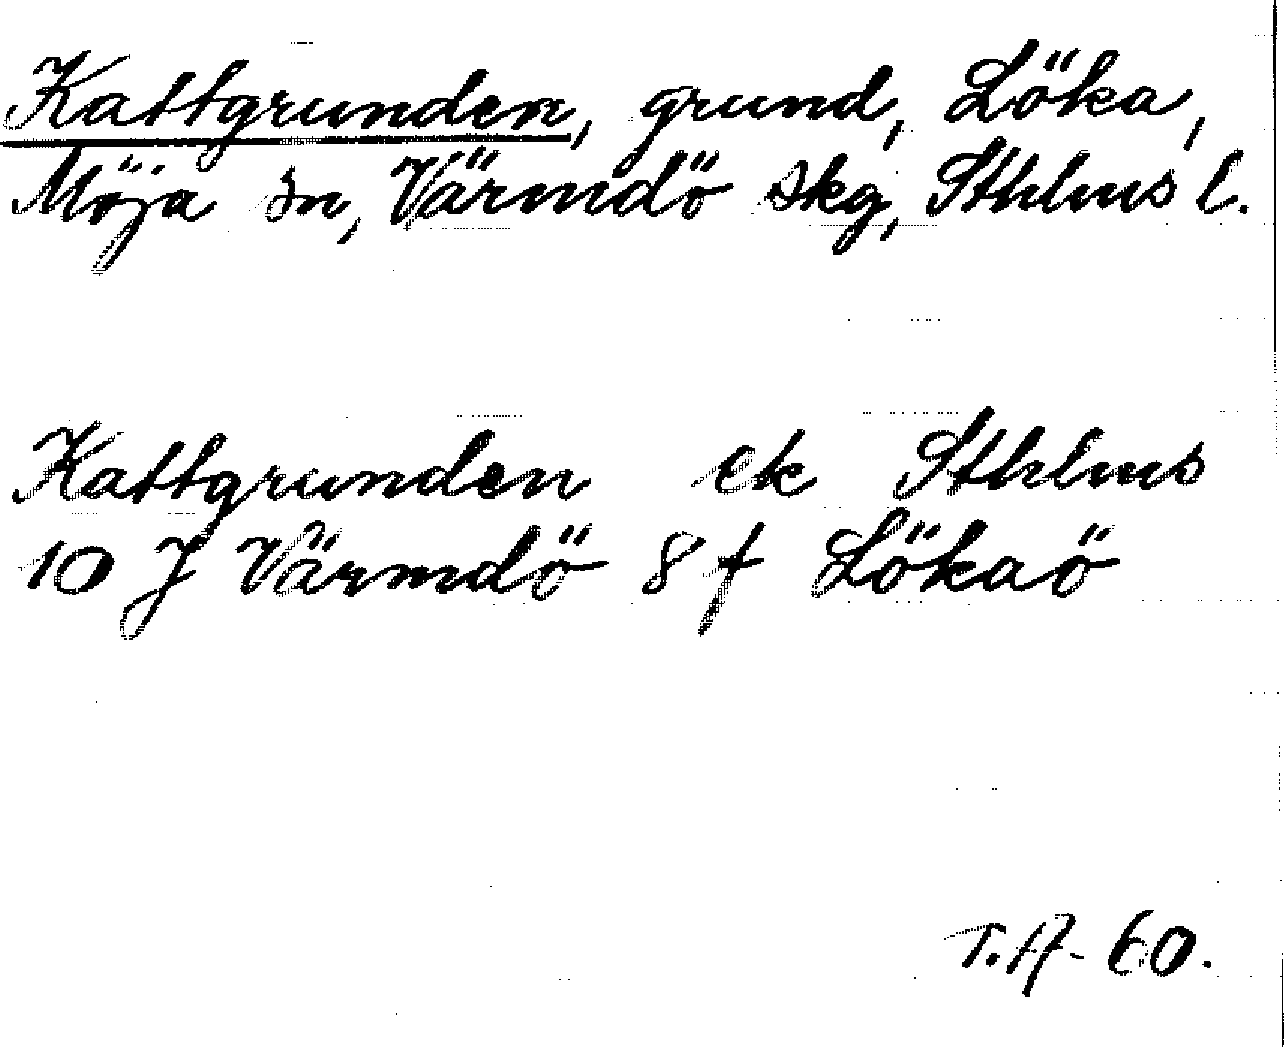 Kattgrunden, grund, Löka,
Möja sn, Värmdö skg, Sthlms l.
Kattgrunden ek Sthlms
10 J Värmdö 8 f Lökaö
T.A-60.